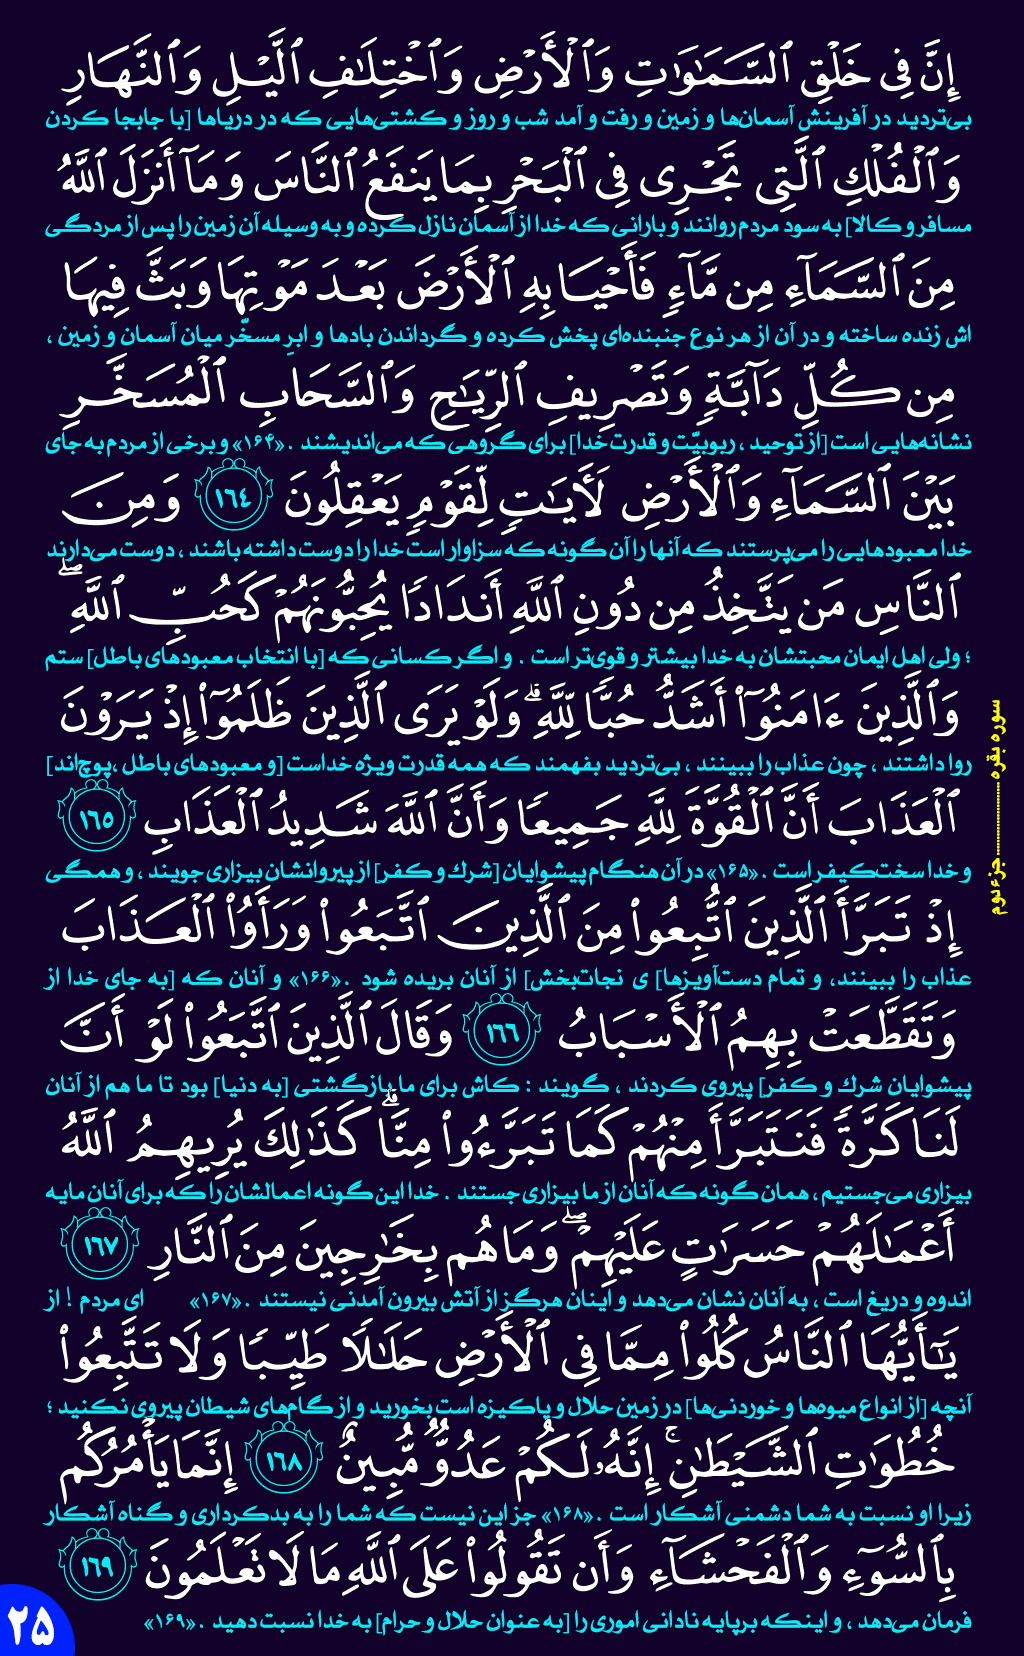 إِنَّ فِى خَلْقِ ٱلسَّمَـٰوَٰتِ وَٱلْأَرْضِ وَٱخْتِلَـٰفِ ٱلَّيْلِ وَٱلنَّهَارِ
بی‌تردید در آفرینش آسمان‌ها و زمین و رفت و آمد شب و روز و کشتی‌هایی که در دریاها [با جابجا کردن
وَٱلْفُلْكِ ٱلَّتِى تَجْرِى فِى ٱلْبَحْرِ بِمَا يَنفَعُ ٱلنَّاسَ وَمَآ أَنزَلَ ٱللَّهُ
مسافر و کالا] به سود مردم روانند و بارانی که خدا از آسمان نازل کرده و به وسیله آن زمین را پس از مردگی
مِنَ ٱلسَّمَآءِ مِن مَّآءٍ فَأَحْيَا بِهِ ٱلْأَرْضَ بَعْدَ مَوْتِهَا وَبَثَّ فِيهَا
اش زنده ساخته و در آن از هر نوع جنبنده‌ای پخش کرده و گرداندن بادها و ابرِ مسخّر میان آسمان و زمین ،
مِن كُلِّ دَآبَّةٍ وَتَصْرِيفِ ٱلرِّيَـٰحِ وَٱلسَّحَابِ ٱلْمُسَخَّرِ
نشانه‌هایی است [از توحید ، ربوبیّت و قدرت خدا] برای گروهی که می‌اندیشند . «۱۶۴» و برخی از مردم به جای
بَيْنَ ٱلسَّمَآءِ وَٱلْأَرْضِ لَـَٔايَـٰتٍ لِّقَوْمٍ يَعْقِلُونَ ١٦٤ وَمِنَ
خدا معبودهایی را می‌پرستند که آنها را آن گونه که سزاوار است خدا را دوست داشته باشند ، دوست می‌دارند
ٱلنَّاسِ مَن يَتَّخِذُ مِن دُونِ ٱللَّهِ أَندَادًا يُحِبُّونَهُمْ كَحُبِّ ٱللَّهِ ۖ
؛ ولی اهل ایمان محبتشان به خدا بیشتر و قوی‌تر است . و اگر کسانی که [با انتخاب معبودهای باطل] ستم
وَٱلَّذِينَ ءَامَنُوٓا۟ أَشَدُّ حُبًّا لِّلَّهِ ۗ وَلَوْ يَرَى ٱلَّذِينَ ظَلَمُوٓا۟ إِذْ يَرَوْنَ
روا داشتند ، چون عذاب را ببینند ، بی‌تردید بفهمند که همه قدرت ویژه خداست [و معبودهای باطل ،پوچ‌اند]
ٱلْعَذَابَ أَنَّ ٱلْقُوَّةَ لِلَّهِ جَمِيعًا وَأَنَّ ٱللَّهَ شَدِيدُ ٱلْعَذَابِ ١٦٥
و خدا سخت‌کیفر است . «۱۶۵» در آن هنگام پیشوایان [شرك و کفر] از پیروانشان بیزاری جویند ، و همگی
إِذْ تَبَرَّأَ ٱلَّذِينَ ٱتُّبِعُوا۟ مِنَ ٱلَّذِينَ ٱتَّبَعُوا۟ وَرَأَوُا۟ ٱلْعَذَابَ
عذاب را ببینند، و تمام دست‌آویزها] ی نجات‌بخش] از آنان بریده شود . «۱۶۶» و آنان که [به جای خدا از
وَتَقَطَّعَتْ بِهِمُ ٱلْأَسْبَابُ ١٦٦ وَقَالَ ٱلَّذِينَ ٱتَّبَعُوا۟ لَوْ أَنَّ
پیشوایان شرك و کفر] پیروی کردند ، گویند : کاش برای ما بازگشتی [به دنیا] بود تا ما هم از آنان
لَنَا كَرَّةً فَنَتَبَرَّأَ مِنْهُمْ كَمَا تَبَرَّءُوا۟ مِنَّا ۗ كَذَٰلِكَ يُرِيهِمُ ٱللَّهُ
بیزاری می‌جستیم ، همان گونه که آنان از ما بیزاری جستند . خدا این گونه اعمالشان را که برای آنان مایه
أَعْمَـٰلَهُمْ حَسَرَٰتٍ عَلَيْهِمْ ۖ وَمَا هُم بِخَـٰرِجِينَ مِنَ ٱلنَّارِ ١٦٧
اندوه و دریغ است ، به آنان نشان می‌دهد و اینان هرگز از آتش بیرون آمدنی نیستند . «۱۶۷» ای مردم ! از
يَـٰٓأَيُّهَا ٱلنَّاسُ كُلُوا۟ مِمَّا فِى ٱلْأَرْضِ حَلَـٰلًا طَيِّبًا وَلَا تَتَّبِعُوا۟
آنچه [از انواع میوه‌ها و خوردنی‌ها] در زمین حلال و پاکیزه است بخورید و از گام‌های شیطان پیروی نکنید ؛
خُطُوَٰتِ ٱلشَّيْطَـٰنِ ۚ إِنَّهُۥ لَكُمْ عَدُوٌّ مُّبِينٌ ١٦٨ إِنَّمَا يَأْمُرُكُم
زیرا او نسبت به شما دشمنی آشکار است . «۱۶۸» جز این نیست که شما را به بدکرداری و گناه آشکار
بِٱلسُّوٓءِ وَٱلْفَحْشَآءِ وَأَن تَقُولُوا۟ عَلَى ٱللَّهِ مَا لَا تَعْلَمُونَ ١٦٩
فرمان می‌دهد ، و اینکه بر پایه نادانی اموری را [به عنوان حلال و حرام] به خدا نسبت دهید . «۱۶۹»
سوره بقره ........................ جزء دوم
۲۵